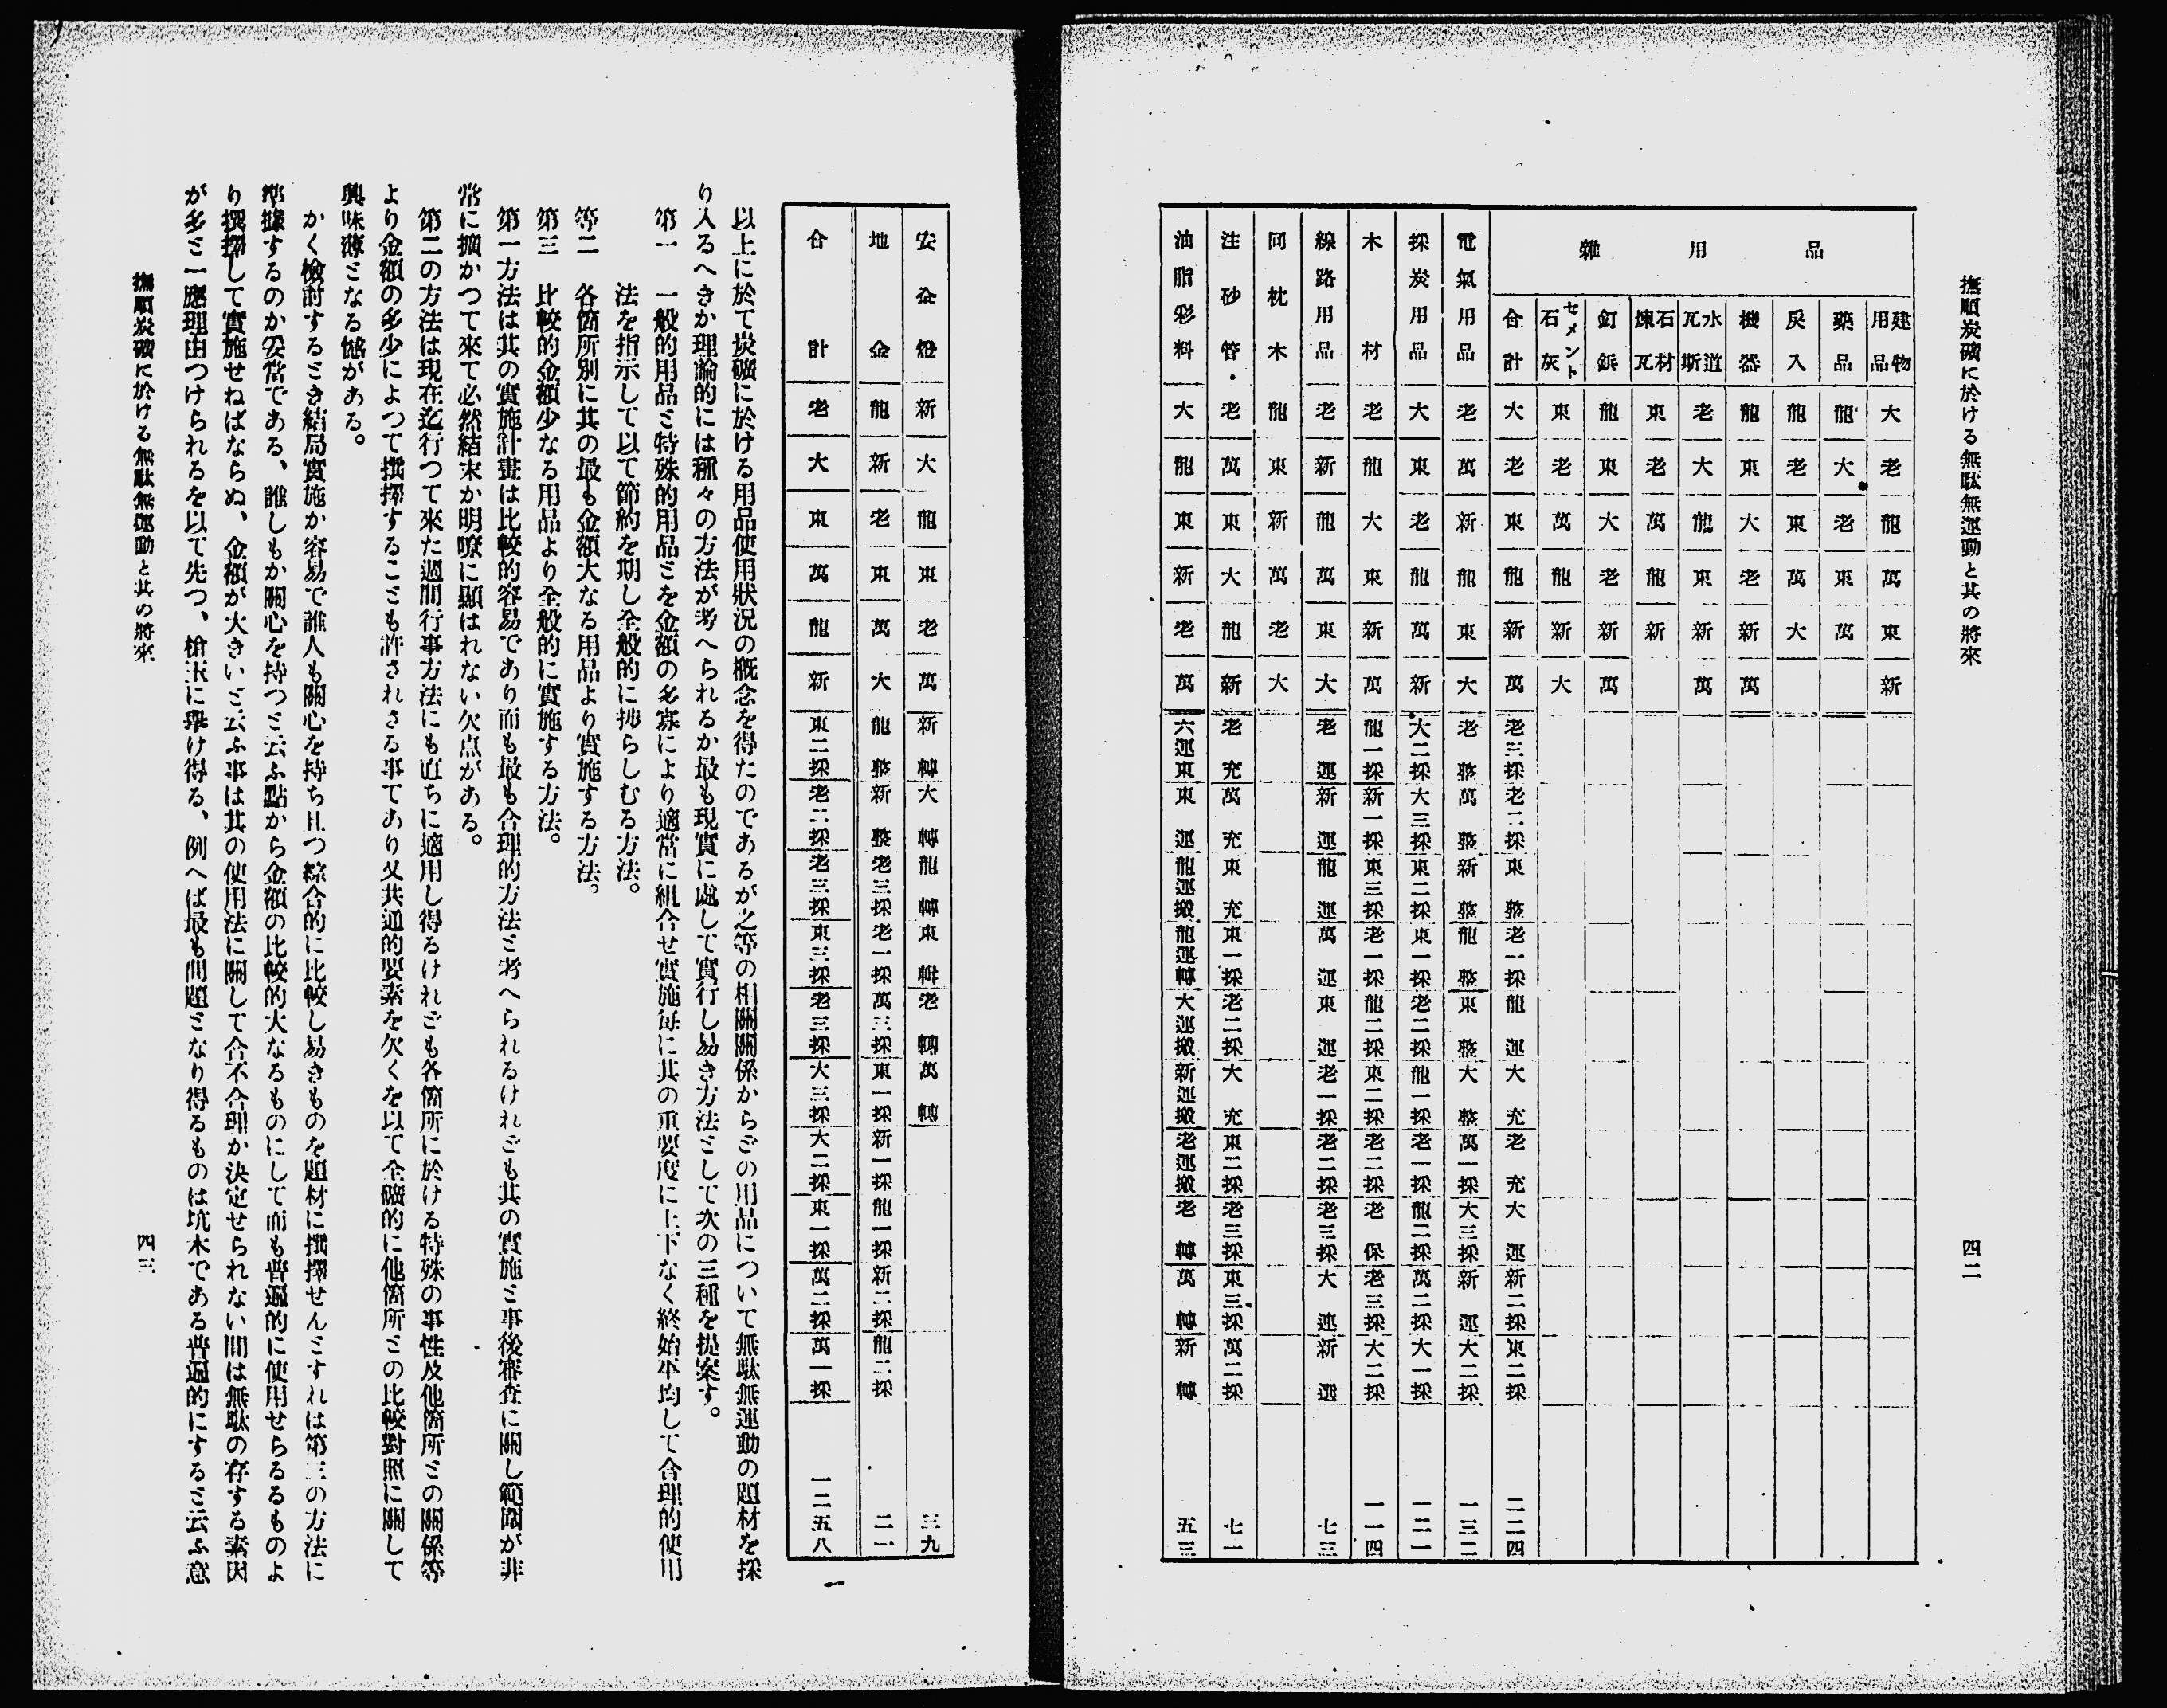 撫順炭礦に於ける無駄無運動と其の將來
四二
雜用品
建物用品 大 老 龍 萬 東 新
藥品 龍 大 老 東 萬
戻入 龍 老 東 萬 大
機器 龍 東 大 老 新 萬
水道瓦斯 老 大 龍 東 新 萬
石材煉瓦 東 老 萬 龍 新
釘鋲 龍 東 大 老 新 萬
セメント石灰 東 老 萬 龍 新 大
合計 大 老 東 龍 新 萬 老三採 老二採 東整 老一採 龍運 大充 老充 大運 新二採 東二採 二二四
電氣用品 老 萬 新 龍 東 大 老整 萬整 新整 龍整 東整 大整 萬一採 大三採 新運 大二採 一三二
採炭用品 大 東 老 龍 萬 新 大二採 大三採 東二採 東一採 老二採 龍一採 老一採 龍二採 萬二採 大一採 一二一
木材 老 龍 大 東 新 萬 龍一採 新一採 東三採 老一採 龍二採 東二採 老二採 老保 老三採 大二採 一一四
線路用品 老 新 龍 萬 東 大 老運 新運 龍運 萬運 東運 老一採 老二採 老三採 大運 新運 七三
同枕木 龍 東 新 萬 老 大
注砂管 老 萬 東 大 龍 新 老充 萬充 東充 東一採 老二採 大充 東二採 老三採 東三採 萬二採 七一
油脂彩料 大 龍 東 新 老 萬 六運東 東運 龍運搬 龍運轉 大運搬 新運搬 老運搬 老轉 萬轉 新轉 五三
安全燈 新 大 龍 東 老 萬 新轉 大轉 龍轉 東轉 老轉 萬轉 三九
地金 龍 新 老 東 萬 大 龍整 新整 老三採 老一採 萬三採 東一採 新一採 龍一採 新二採 龍二採 二一
合計 老 大 東 萬 龍 新 東二採 老二採 老三採 東三採 老三採 大三採 大二採 東一採 萬二採 萬一採 一二五八
以上に於て炭礦に於ける用品使用狀況の概念を得たのであるが之等の相關關係からどの用品について無駄無運動の題材を採
り入るへきか理論的には種々の方法が考へられるか最も現實に處して實行し易き方法ミして次の三種を提案す。
第一 一般的用品ミ特殊的用品ミを金額の多寡により適當に組合せ實施每に其の重要度に上下なく終始平均して合理的使用
法を指示して以て節約を期し全般的に拂らしむる方法。
等二 各箇所別に其の最も金額大なる用品より實施する方法。
第三 比較的金額少なる用品より全般的に實施する方法。
第一方法は其の實施計畫は比較的容易であり而も最も合理的方法ミ考へられるけれども其の實施ミ事後審査に關し範圍が非
常に擴かつて來て必然結末か明瞭に顯はれない欠点がある。
第二の方法は現在迄行つて來た週間行事方法にも直ちに適用し得るけれども各箇所に於ける特殊の事性及他箇所ミの關係等
より金額の多少によつて撰擇するこミも許されさる事てあり又共通的要素を欠くを以て全礦的に他箇所ミの比較對照に關して
興味薄ミなる憾がある。
かく檢討するミき結局實施か容易で誰人も關心を持ち且つ綜合的に比較し易きものを題材に撰擇せんミすれは第三の方法に
準據するのか妥當である、誰しもか關心を持つミ云ふ點から金額の比較的大なるものにして而も普遍的に使用せらるるものよ
り撰擇して實施せねばならぬ、金額が大きいミ云ふ事は其の使用法に關して合不合理か決定せられない間は無駄の存する素因
が多ミ一應理由つけられるを以て先つ、槍玉に擧け得る、例へば最も問題ミなり得るものは坑木である普遍的にするミ云ふ意
撫順炭礦に於ける無駄無運動と其の將來
四三